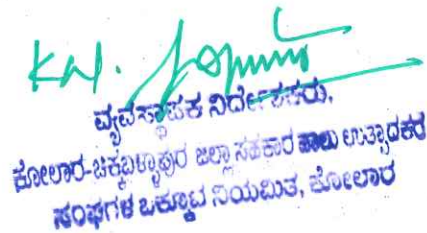 ವ್ಯವಸ್ಥಾಪಕ ನಿರ್ದೇಶಕರು,
ಕೋಲಾರ-ಚಿಕ್ಕಬಳ್ಳಾಪುರ ಜಿಲ್ಲಾ ಸಹಕಾರ ಹಾಲು ಉತ್ಪಾದಕರ
ಸಂಘಗಳ ಒಕ್ಕೂಟ ನಿಯಮಿತ, ಕೋಲಾರ